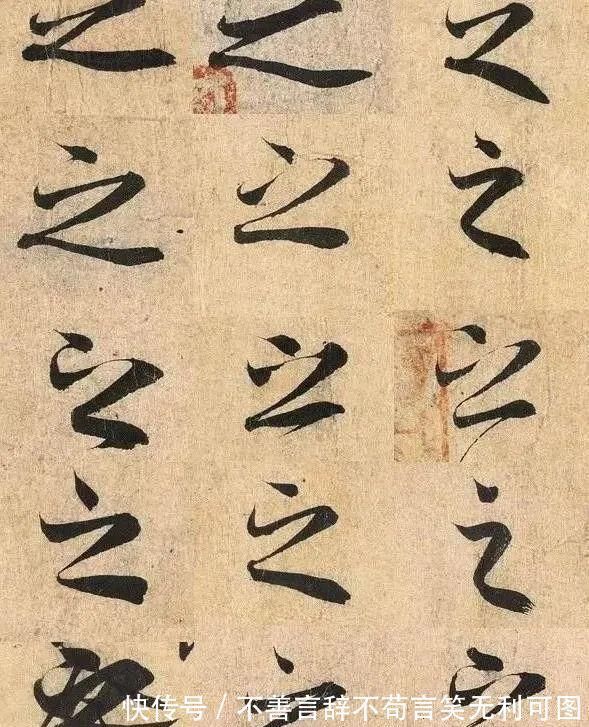 之 之 之
之 之 之
之 之 之
之 之 之
快传号 / 不善言辞不苟言笑无利可图